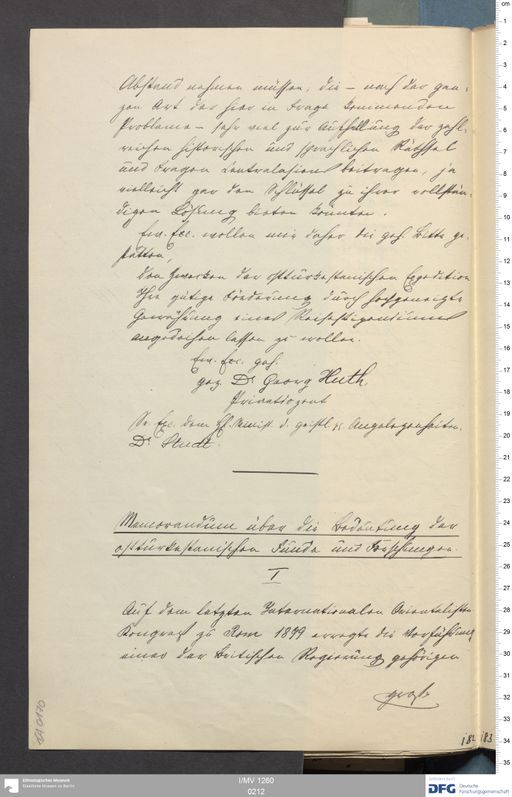 Abstand nehmen müssen, die – nach der gan-
zen Art der hier in Frage kommenden
Probleme – sehr viel zur Aufhellung der zahl-
reichen historischen und sprachlichen Räthsel
und Fragen Centralasiens beitragen, ja
vielleicht gar den Schlüssel zu ihrer vollstän-
digen Lösung bieten könnten.
Ew. Exc. wollen mir daher die geh. Bitte ge-
statten,
den Zwecken der ostturkestanischen Expedition
Ihre gütige Förderung durch hochgeneigte
Gewährung eines Reisestipendiums
angedeihen lassen zu wollen.
Ew. Exc. geh.
gez. Dr Georg Huth,
Privatdozent
Sr. Exc. dem H. Minist. d. geistl. pp. Angelegenheiten,
Dr Studt.
Memorandum über die Bedeutung der
ostturkestanischen Funde und Forschungen.
I
Auf dem letzten Internationalen Orientalisten
Kongreß zu Rom 1899 erregte die Vorführung
einer der Britischen Regierung gehörigen
182
183
Ethnologisches Museum
Staatliche Museen zu Berlin
I/MV 1260
0212
DFG Deutsche
Forschungsgemeinschaft